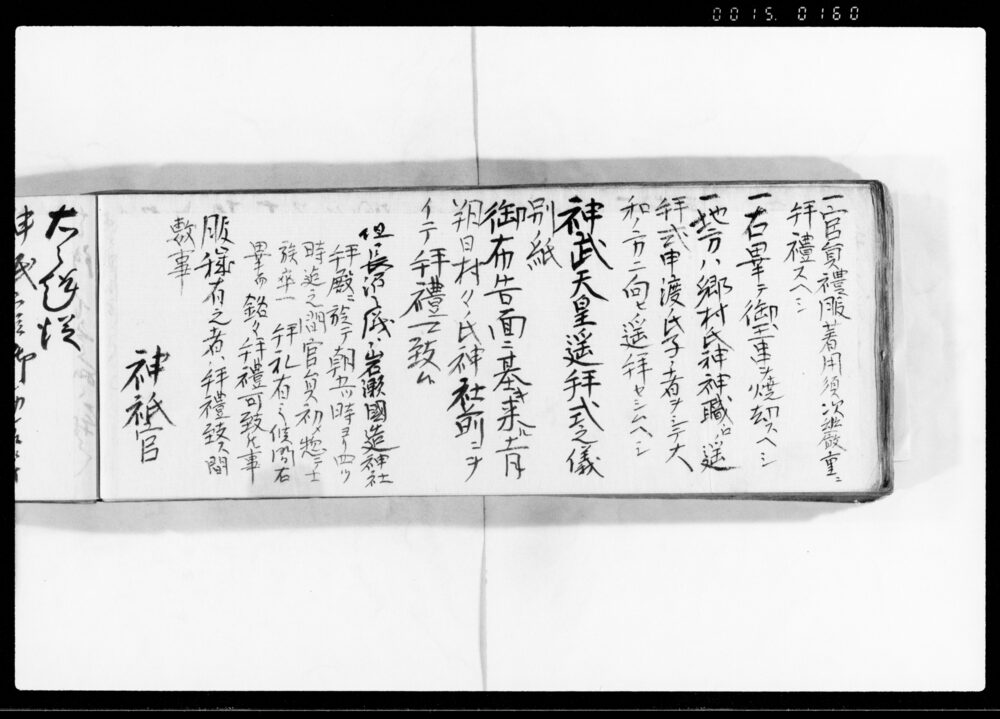 0015.0160
一官員禮服著用須次ニ嚴重ニ
拜禮スヘシ
一右畢テ御玉串ヲ燒却スヘシ
一地方ハ鄕村氏神神職ヨリ遙
拜式申渡シ氏子ノ者ヲシテ大
和ノ方ニ向ヒ遙拜セシムヘシ
神武天皇遙拜式之儀
別ノ紙
御布告面ニ基キ來ル十一月
朔日村々ノ氏神社前ニヲ
イテ拜禮可致候
但長沼廳ハ岩瀨國造神社
拜殿ニ於テ朝五ツ時ヨリ四ツ
時迄之間官員初メ惣テ士
族卒一 拜礼有之候間右
畢而銘々拜禮可致候事
服穢有之者ハ拜禮致ス間
敷事
神祇官